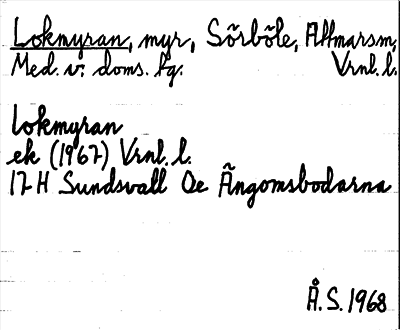 Lokmyran, myr, Sörböle, Attmarsm,
Med. v: doms. tg. Vrnl. l.
Lokmyran
ek (1967) Vrnl. l.
17 H Sundsvall Oe Ängomsbodarna
Å. S. 1968